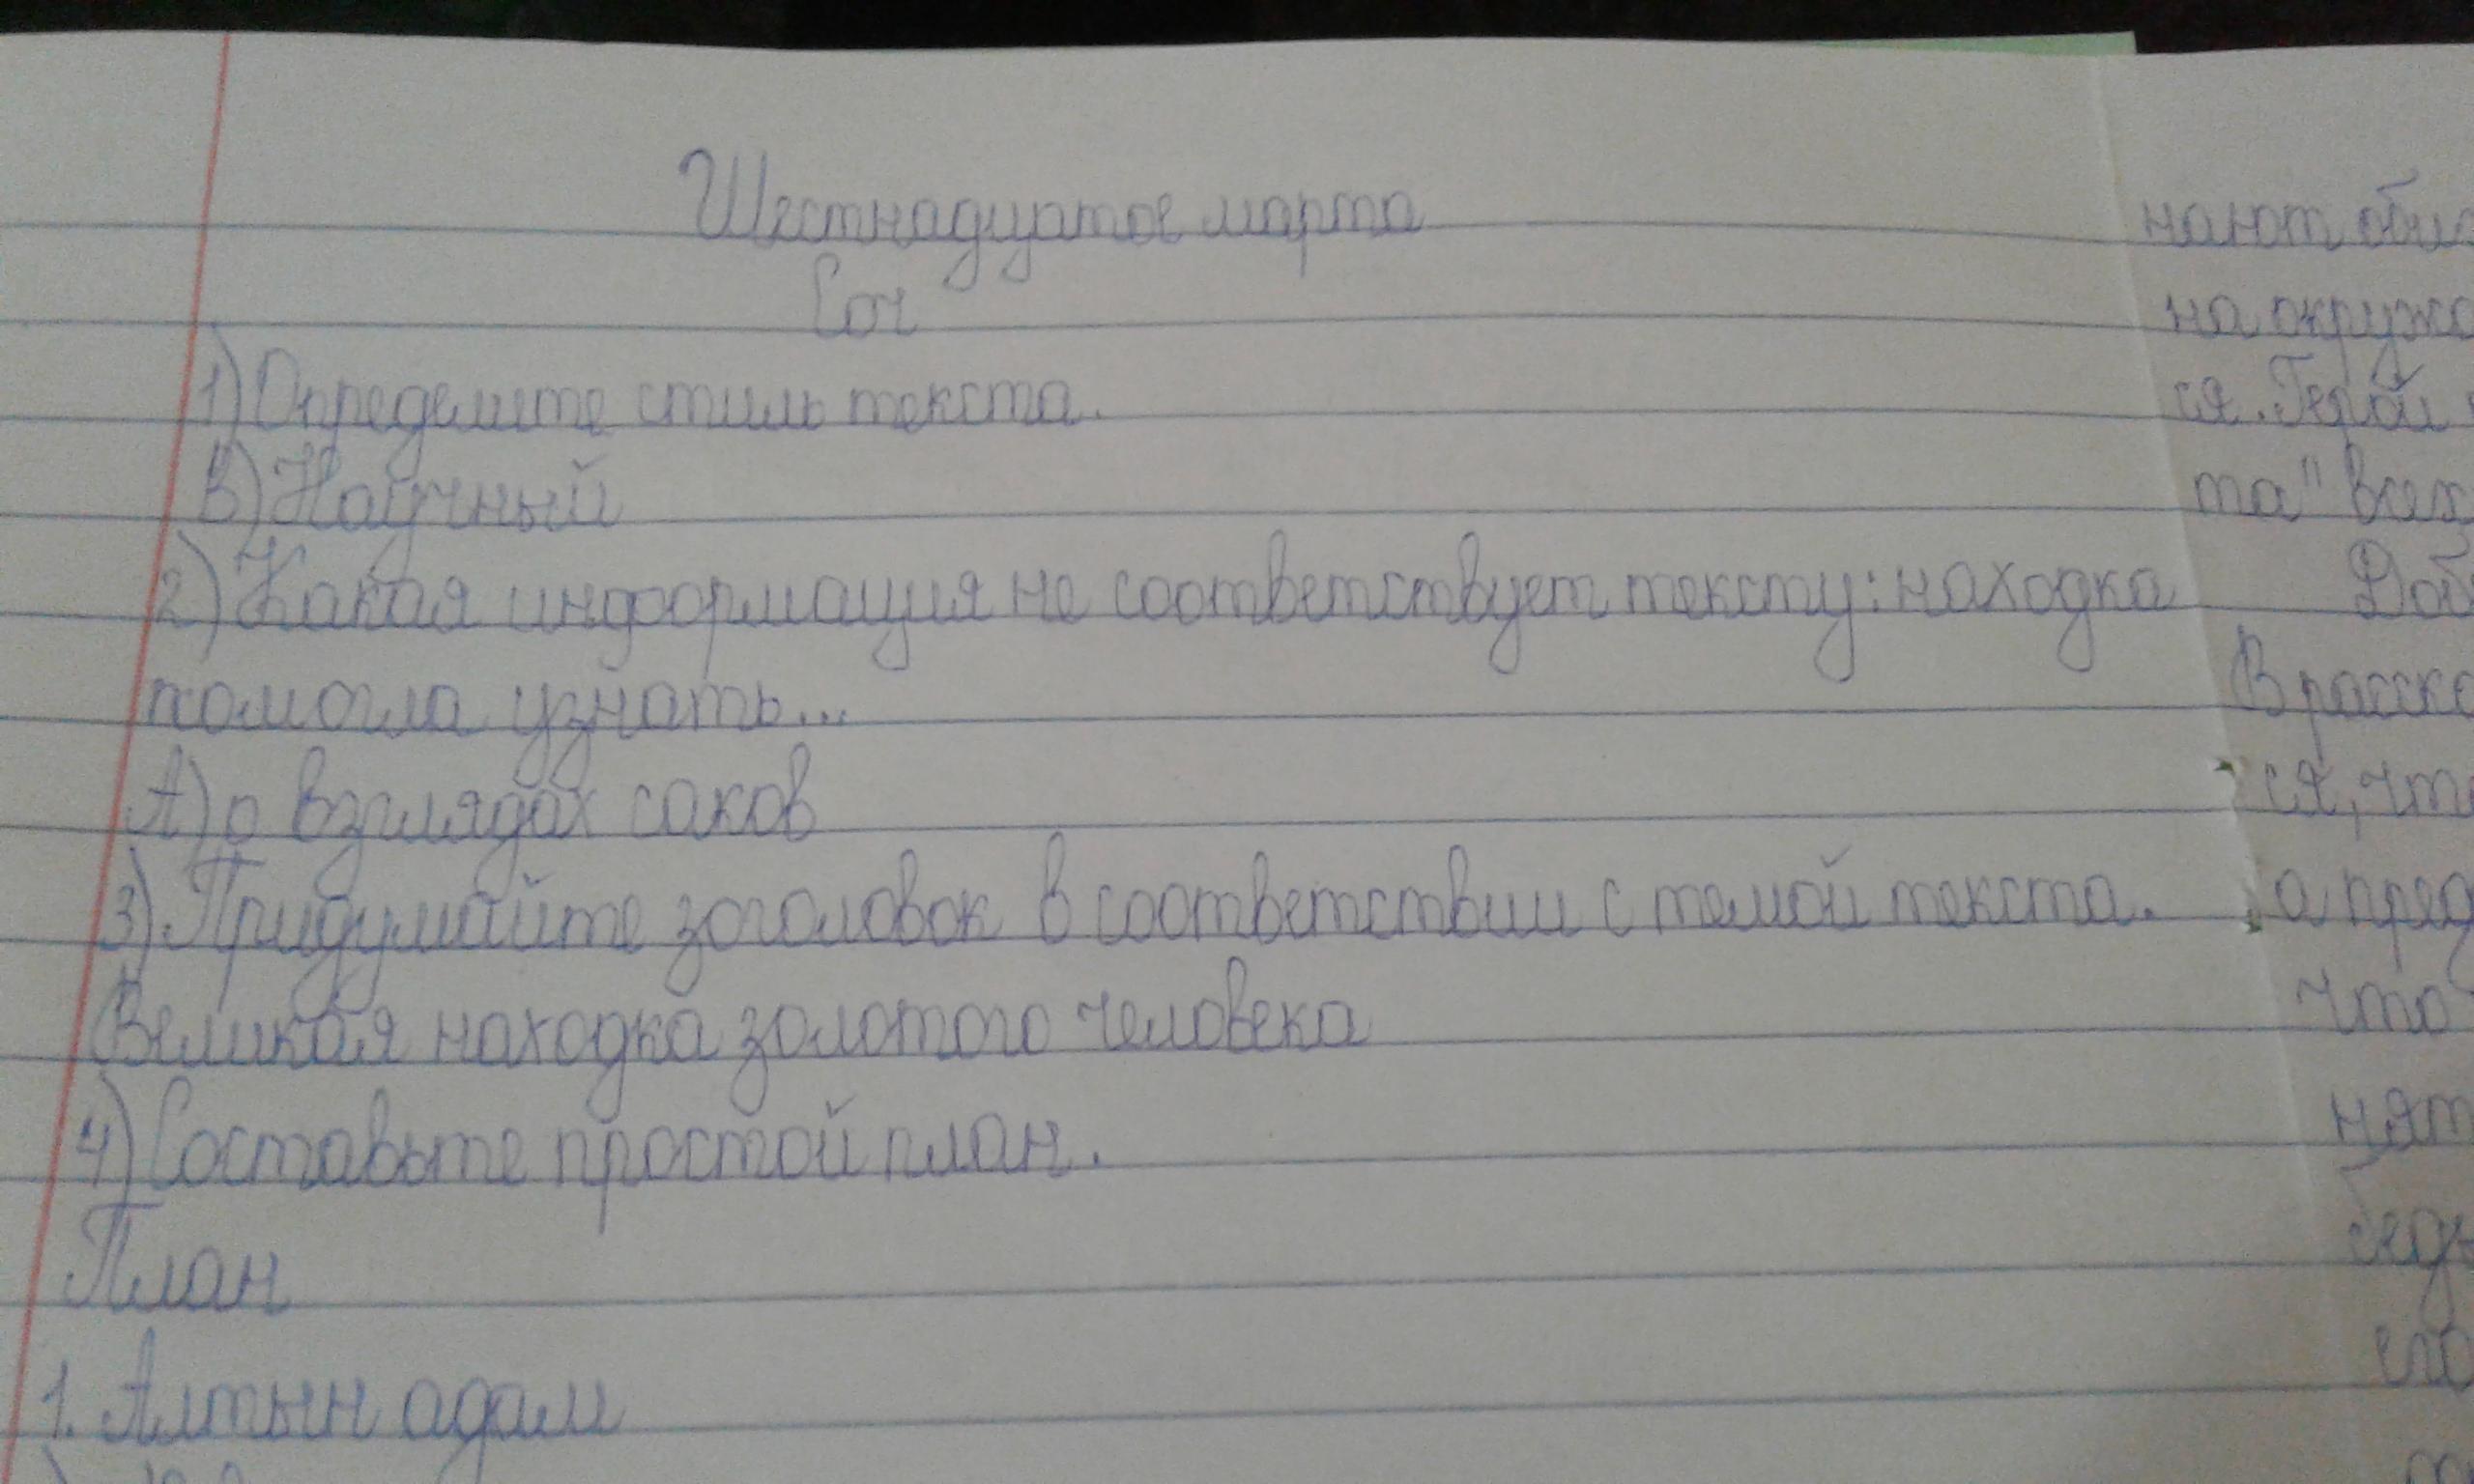 Шестнадцатое марта
Соч
1) Определите стиль текста.
В) Научный
2) Какая информация не соответствует тексту: находка
помогла узнать...
А) о взглядах саков
3) Придумайте заголовок в соответствии с темой текста.
Великая находка золотого человека
4) Составьте простой план.
План
1. Алтын адам
нают
на
ся. Герой
та" всех
В
ся, что
а
что
его